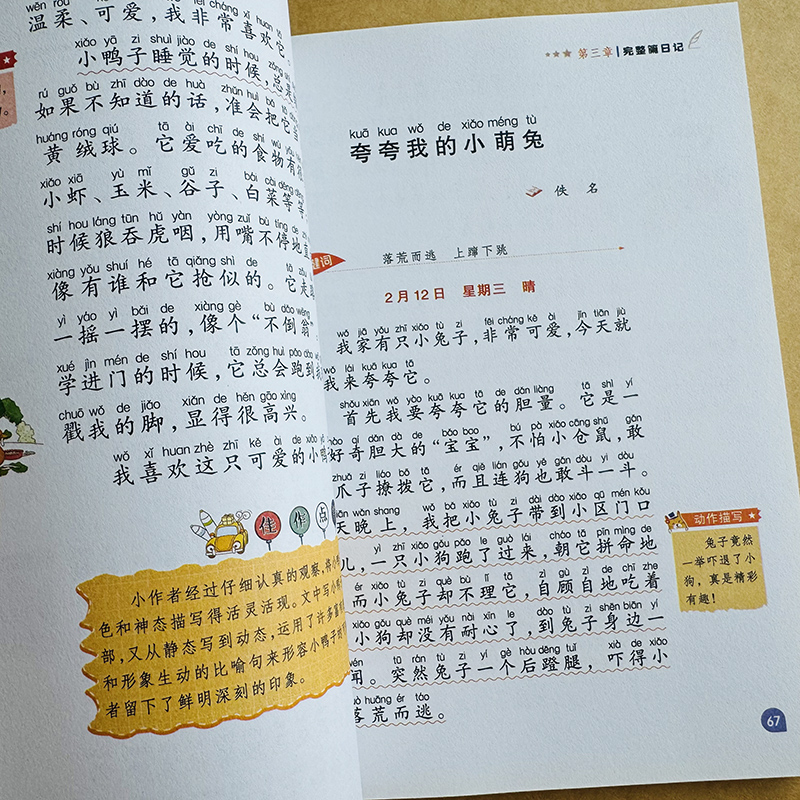 wēn róu kě ài wǒ fēi cháng xǐ huan tā
温柔、可爱,我非常喜欢它。
xiǎo yā zi shuì jiào de shí hou
小鸭子睡觉的时候,总是
rú guǒ bù zhī dào de huà zhǔn huì bǎ tā
如果不知道的话,准会把它当
huáng róng qiú tā ài chī de shí wù yǒu
黄绒球。它爱吃的食物有
xiǎo xiā yù mǐ gǔ zi bái cài děng děng
小虾、玉米、谷子、白菜等等
shí hou láng tūn hǔ yàn yòng zuǐ bù tíng de
时候狼吞虎咽,用嘴不停地
xiàng yǒu shuí hé tā qiǎng shì de tā zǒu
像有谁和它抢似的。它走
yì yáo yì bǎi de xiàng gè bù dǎo wēng
一摇一摆的,像个“不倒翁”
xué jìn mén de shí hou tā zǒng huì pǎo dào
学进门的时候,它总会跑到
chuō wǒ de jiǎo xiǎn de hěn gāo xìng
戳我的脚,显得很高兴。
wǒ xǐ huan zhè zhī kě ài de xiǎo yā
我喜欢这只可爱的小鸭
佳作点
小作者经过仔细认真的观察,将小
色和神态描写得活灵活现。文中写小
部,又从静态写到动态,运用了许多
和形象生动的比喻句来形容小鸭子的
者留下了鲜明深刻的印象。
第三章 完整篇日记
kuā kua wǒ de xiǎo méng tù
夸夸我的小萌兔
佚 名
键词
落荒而逃 上蹿下跳
2月12日 星期三 晴
wǒ jiā yǒu zhī xiǎo tù zi fēi cháng kě ài jīn tiān jiù
我家有只小兔子,非常可爱,今天就
wǒ lái kuā kua tā
我来夸夸它。
shǒu xiān wǒ yào kuā kua tā de dǎn liàng tā shì yí
首先我要夸夸它的胆量。它是一
hào qí dǎn dà de bǎo bǎo bú pà xiǎo cāng shǔ gǎn
好奇胆大的“宝宝”,不怕小仓鼠,敢
zhuǎ zi liáo bō tā ér qiě lián gǒu yě gǎn dòu yì dòu
爪子撩拨它,而且连狗也敢斗一斗。
tiān wǎn shang wǒ bǎ xiǎo tù zi dài dào xiǎo qū mén kǒu
天晚上,我把小兔子带到小区门口
yì zhī xiǎo gǒu pǎo le guò lái cháo tā pīn mìng de
儿,一只小狗跑了过来,朝它拼命地
ér xiǎo tù zi què bù lǐ tā zì gù zì de chī zhe
而小兔子却不理它,自顾自地吃着
xiǎo gǒu què méi yǒu nài xīn le dào tù zi shēn biān yí
小狗却没有耐心了,到兔子身边一
wén tū rán tù zi yí gè hòu dēng tuǐ xià de xiǎo
闻。突然兔子一个后蹬腿,吓得小
luò huāng ér táo
落荒而逃。
动作描写
兔子竟然
一举吓退了小
狗,真是精彩
有趣!
67